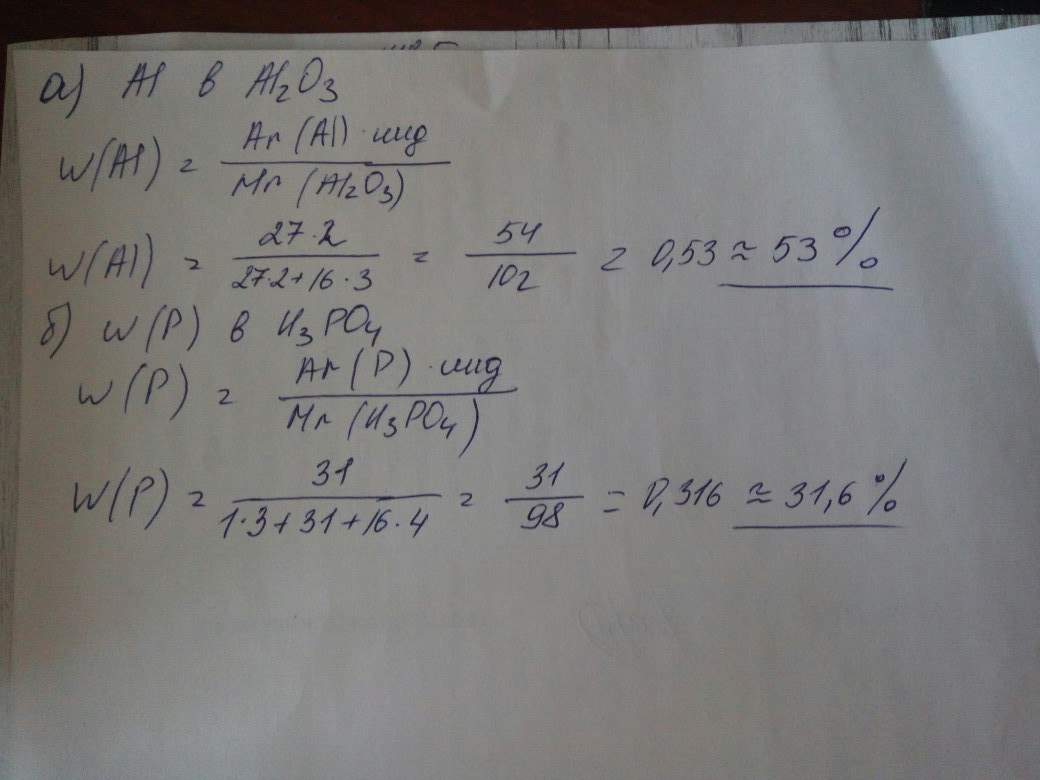 а) Al в Al₂O₃
W(Al) = Ar(Al) · инд / Mr(Al₂O₃)
W(Al) = 27·2 / 27·2+16·3 = 54 / 102 = 0,53 ≈ 53%
б) W(P) в H₃PO₄
W(P) = Ar(P) · инд / Mr(H₃PO₄)
W(P) = 31 / 1·3+31+16·4 = 31 / 98 = 0,316 ≈ 31,6%